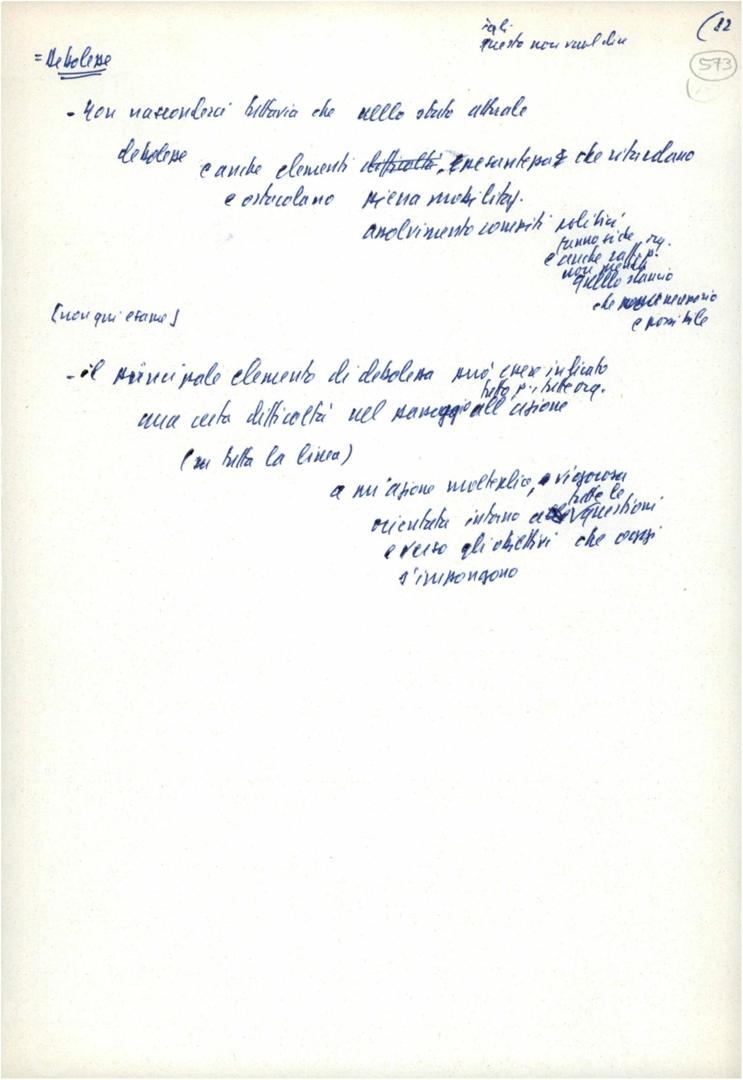 (22
questo non vuol dire
573
= Debolezze
- Non nasconderci tuttavia che nello stato attuale
debolezze e anche elementi difficoltà, e pesantezza che ritardano
e ostacolano piena mobilitaz.
assolvimento compiti politici
e anche raff. p.
non meno
quello slancio
che necessario
e possibile
[non qui esame]
- il principale elemento di debolezza può essere indicato
tutto p. tutte org.
una certa difficoltà nel passaggio all'azione
(su tutta la linea)
a un'azione molteplice, e vigorosa
tutte le
orientata intorno a questioni
e verso gli obiettivi che oggi
s'impongono